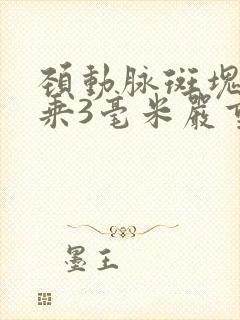 頚動脉斑塊
乘3毫米嚴重
墨王